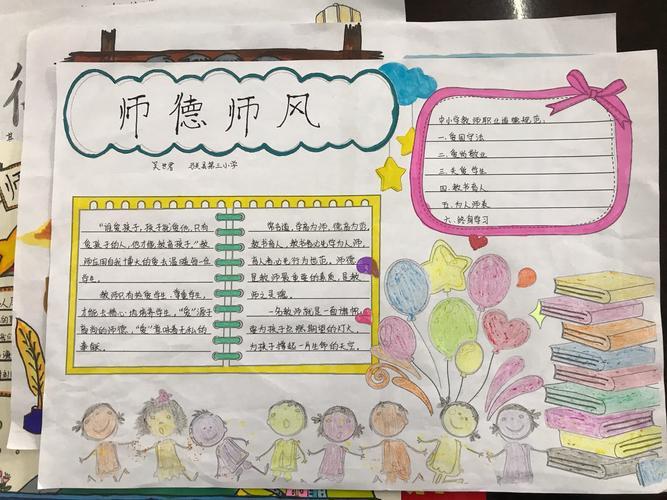 师德师风
中小学教师职业道德规范：
一.爱国守法
二.爱岗敬业
三.关爱学生
四.教书育人
五.为人师表
六.终身学习
“谁爱孩子，孩子就爱他，只有
爱孩子的人，他才能教育孩子。”教
师应用自我博大的爱去温暖每一位
学生。
教师只有热爱学生，尊重学生，
才能去精心
的师德，“爱”意味着无私的
奉献。
常言道，学高为师，德高为范。
教书育人，教书者必先学为人师，
育人者必先行为世范。师德
是教师最重要的素质，是教
师之灵魂。
一名教师就是一面旗帜，
要为孩子点燃期望的灯火，
为孩子撑起一片生命的天空。